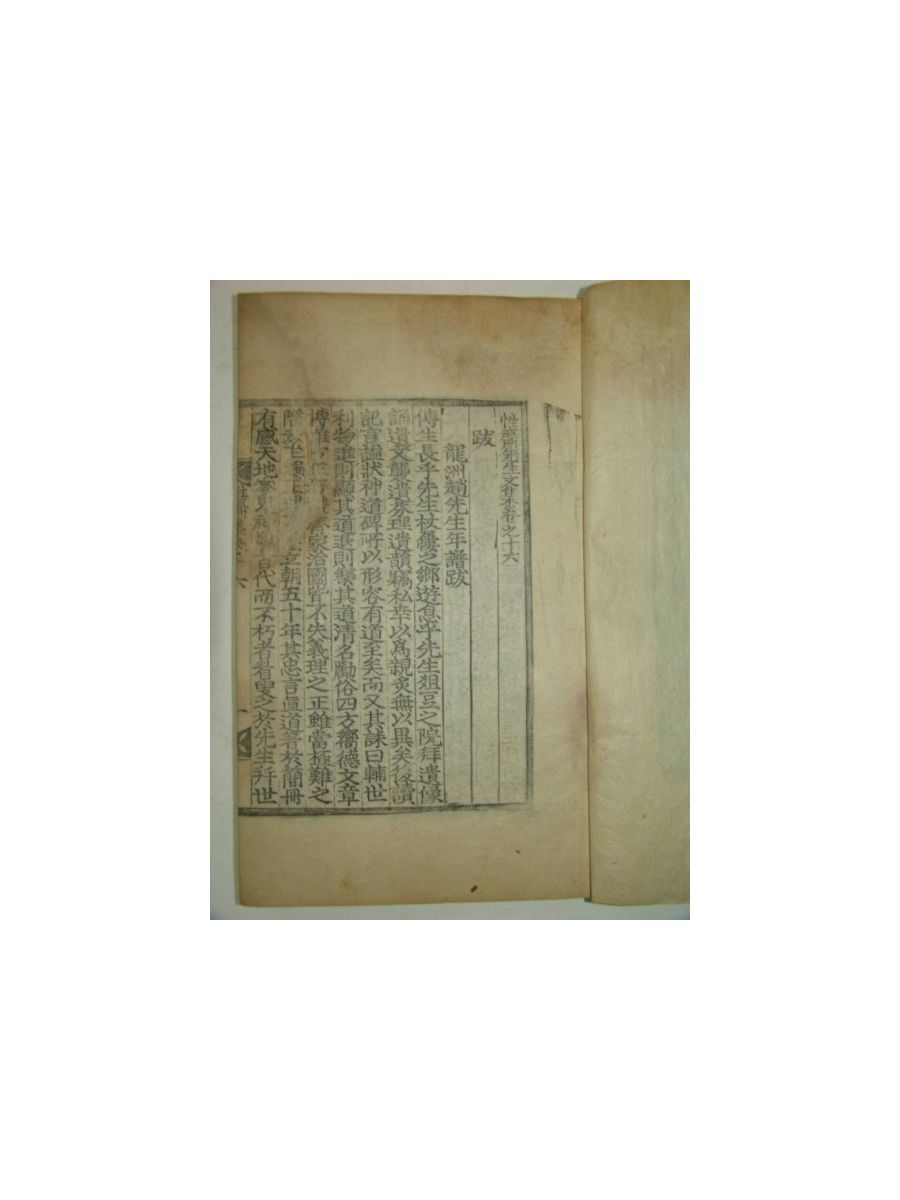 性齋先生文集卷之十六
跋
龍洲趙先生年譜跋
傳生長乎先生杖屨之鄉遊息乎先生俎豆之院拜遺像
誦遺文襲遺芬理遺韻竊私幸以爲親炙無以異矣後讀
記言謚狀神道碑所以形容有道至矣而又其誄曰輔世
利物進則顯其道退則樂其道淸名勵俗四方嚮德文章
博雅 齊家治國皆不失義理之正雖當極難之
際 立朝五十年其忠言直道著於簡冊
有感天地 百代而不朽者眉叟之於先生幷世